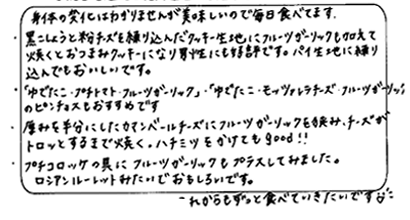 身体の変化はわかりませんが美味しいので毎日食べてます。
・黒こしょうと粉チーズを練り込んだクッキー生地にフルーツガーリックも加えて
焼くとおつまみクッキーになり男性にも好評です。パイ生地に練り
込んでもおいしいです。
・「ゆでたこ・プチトマト・フルーツガーリック」・「ゆでたこ・モッツァレラチーズ・フルーツガーリック」
のピンチョスもおすすめです
・厚みを半分にしたカマンベールチーズにフルーツガーリックを挟み、チーズが
トロッとするまで焼く。ハチミツをかけてもgood!!
・プチコロッケの具にフルーツガーリックもプラスしてみました。
ロシアンルーレットみたいでおもしろいです。
これからもずっと食べていきたいです